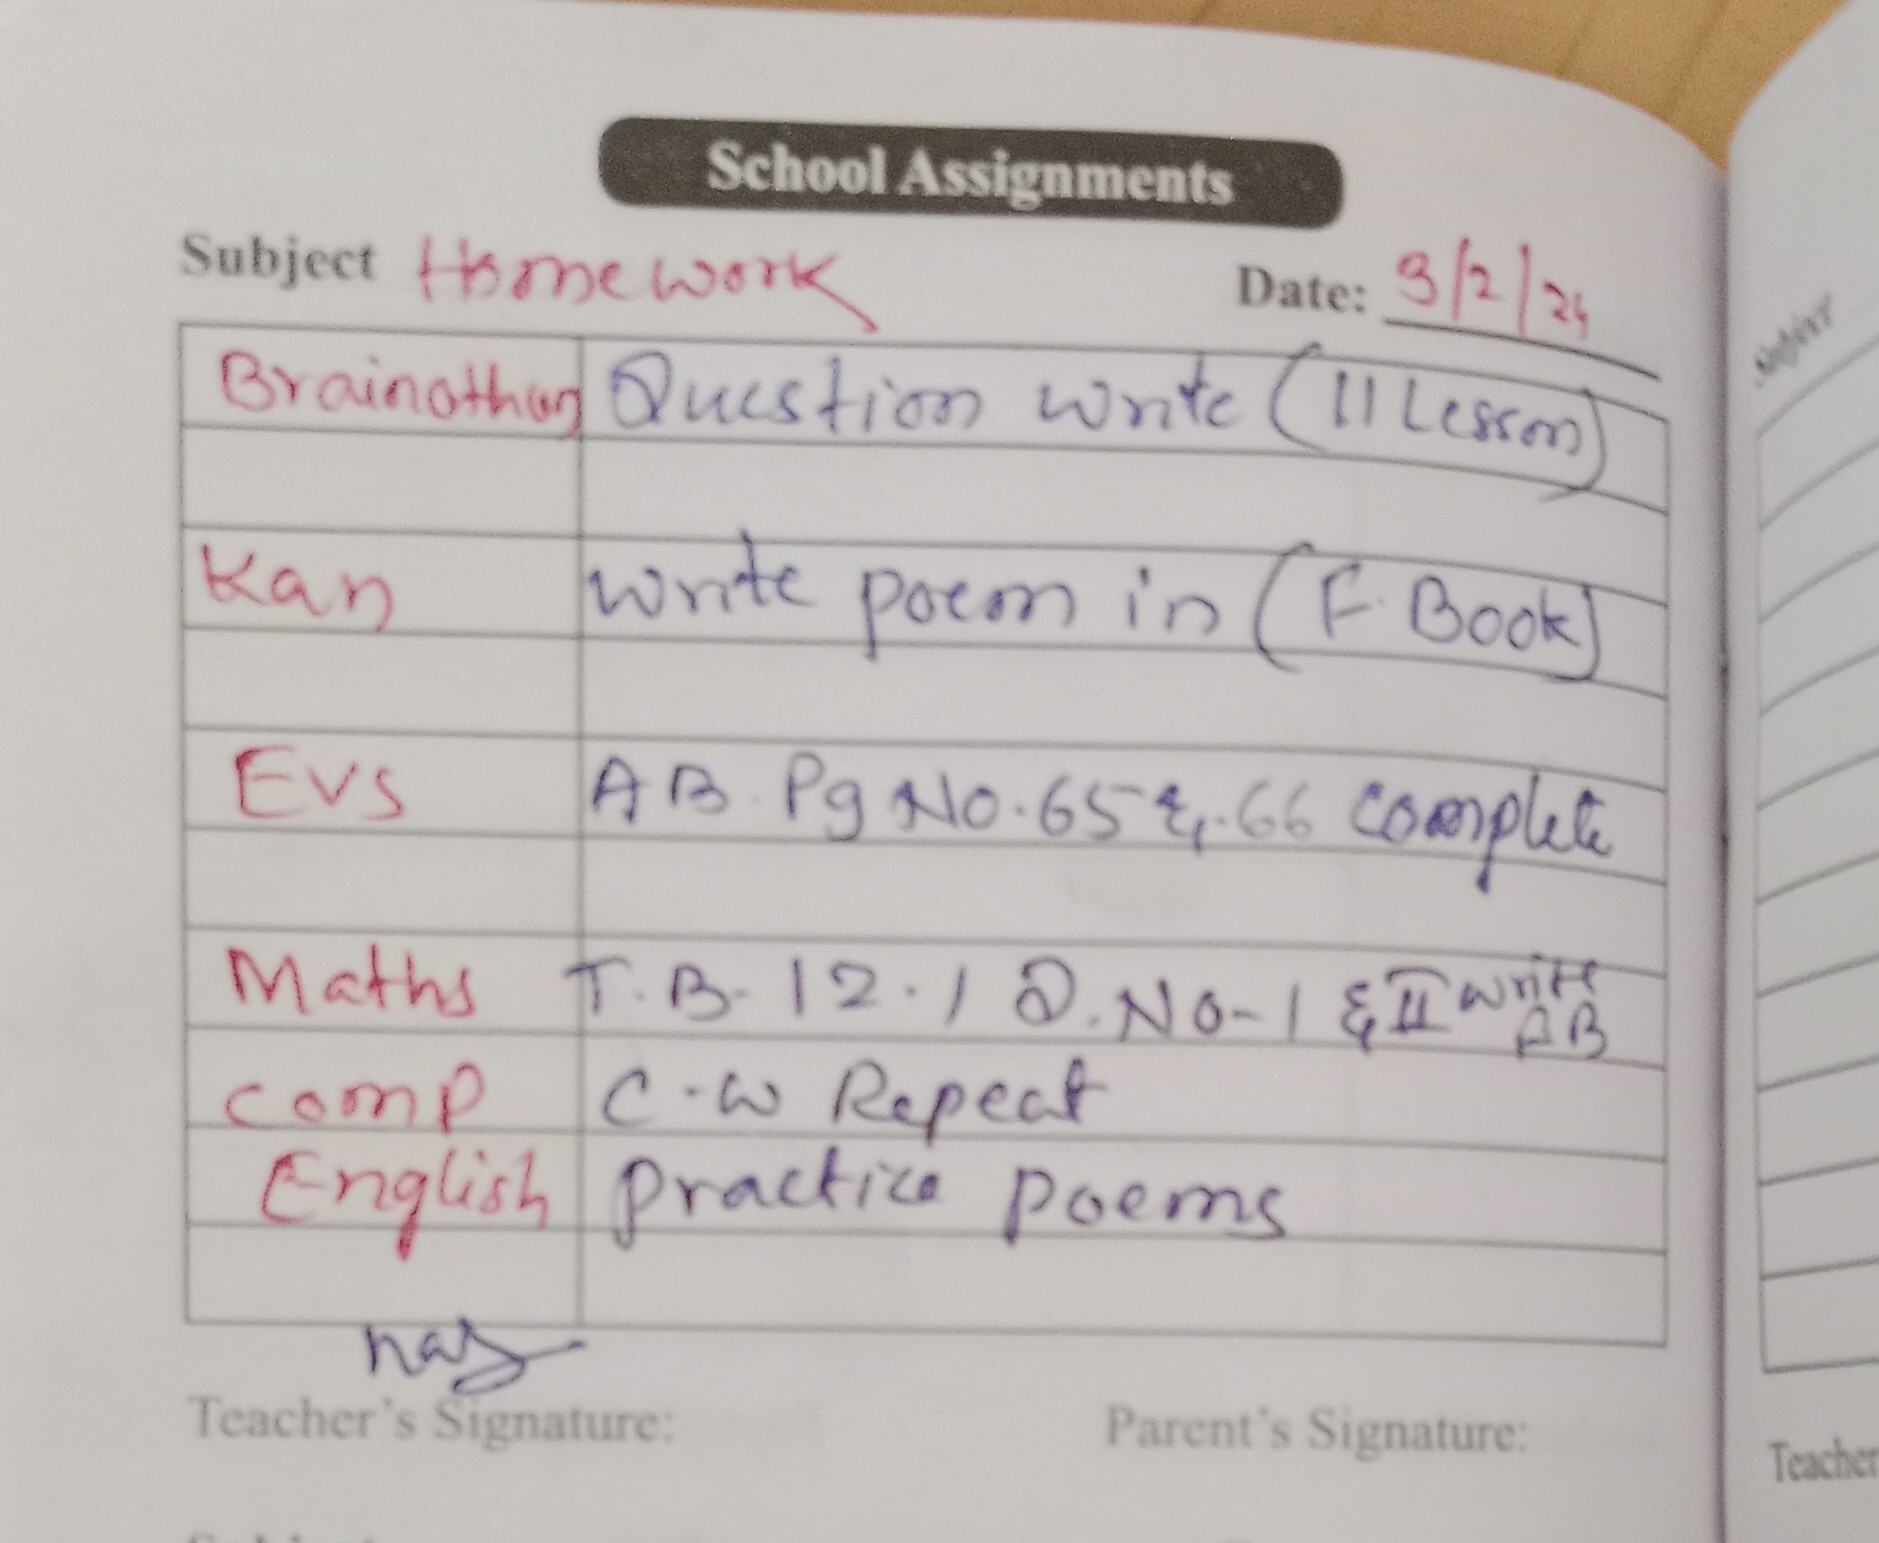 School Assignments
Subject Homework Date: 3/2/24
Brainothon Question write (11 Lesson)
Kan write poem in (F. Book)
Evs A B Pg No. 65 &. 66 complete
Maths T. B- 12.1 Q. No-1 & II write AB
comp C-w Repeat
English practice poems
Teacher's Signature: Parent's Signature:
Subject
Teacher